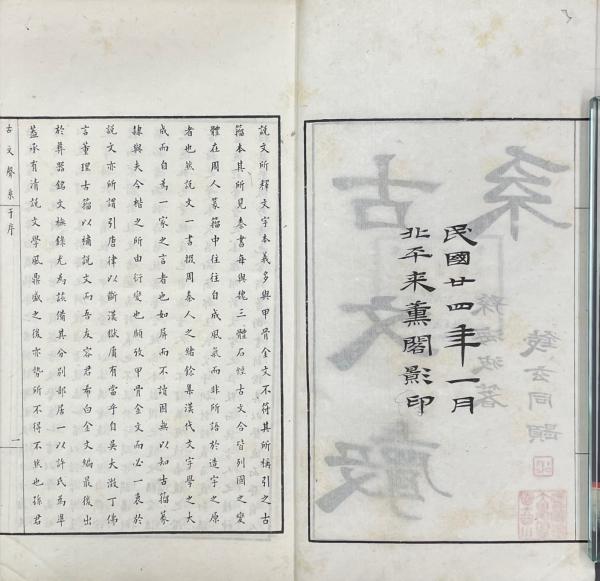 民國廿四年一月
北平来薰閣影印
說文所釋文字本義多與甲骨金文不符其所稱引之古
籀本其所見秦書每與魏三體石經古文合皆列國之變
體在周人篆籀中往往自成風氣而非所語於造字之原
者也然說文一書掇周秦人之緒餘集漢代文字學之大
成而自為一家之言者也如屏而不讀固無以知古籀篆
隸與夫今楷之所由衍變也顧攷甲骨金文而必一衷於
說文亦所謂引唐律以斷漢獄庸有當乎自吳大澂丁佛
言董理古籀以補說文而吾友容君希白金文編最後出
於彝器銘文橅錄尤為該備其分別部居一以許氏為準
蓋承有清說文學風鼎盛之後亦勢所不得不然也孫君
古文聲系 于序
一